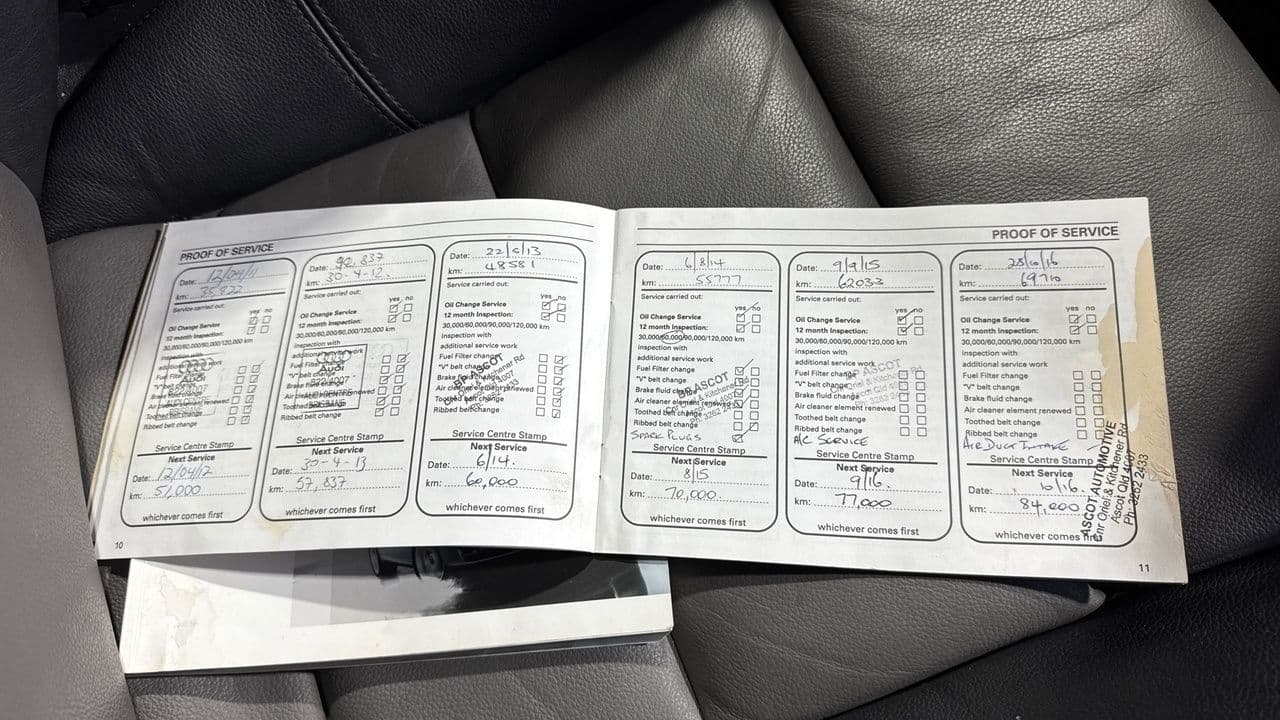 PROOF OF SERVICE
Date: 12/04/11
km: 35,822
Service carried out:
yes no
Oil Change Service
12 month Inspection:
30,000/60,000/90,000/120,000 km
Inspection with
additional service work
Fuel Filter change
"V" belt change
Brake fluid change
Air cleaner element renewed
Toothed belt change
Ribbed belt change
Audi
Service Centre Stamp
Next Service
Date: 12/04/12
km: 51,000
whichever comes first
Date: 92,837
km: 30-4-12
Service carried out:
yes no
Oil Change Service
12 month Inspection:
30,000/60,000/90,000/120,000 km
Inspection with
additional service work
Fuel Filter change
"V" belt change
Brake fluid change
Air cleaner element renewed
Toothed belt change
Ribbed belt change
Audi
Service Centre Stamp
Next Service
Date: 30-4-13
km: 57,837
whichever comes first
Date: 22/5/13
km: 48581
Service carried out:
yes no
Oil Change Service
12 month Inspection:
30,000/60,000/90,000/120,000 km
Inspection with
additional service work
Fuel Filter change
"V" belt change
Brake fluid change
Air cleaner element renewed
Toothed belt change
Ribbed belt change
BP ASCOT
Service Centre Stamp
Next Service
Date: 6/14.
km: 60,000
whichever comes first
10
PROOF OF SERVICE
Date: 6/8/14
km: 55777
Service carried out:
yes no
Oil Change Service
12 month Inspection:
30,000/60,000/90,000/120,000 km
Inspection with
additional service work
Fuel Filter change
"V" belt change
Brake fluid change
Air cleaner element renewed
Toothed belt change
Ribbed belt change
SPARK PLUGS
BP ASCOT
Cnr Oriel & Kitchener Rd
Service Centre Stamp
Next Service
Date: 8/15
km: 70,000.
whichever comes first
Date: 9/9/15
km: 62033
Service carried out:
yes no
Oil Change Service
12 month Inspection:
30,000/60,000/90,000/120,000 km
Inspection with
additional service work
Fuel Filter change
"V" belt change
Brake fluid change
Air cleaner element renewed
Toothed belt change
Ribbed belt change
A/C SERVICE
Service Centre Stamp
Next Service
Date: 9/16.
km: 77,000
whichever comes first
Date: 28/10/16
km: 69710
Service carried out:
yes no
Oil Change Service
12 month Inspection:
30,000/60,000/90,000/120,000 km
Inspection with
additional service work
Fuel Filter change
"V" belt change
Brake fluid change
Air cleaner element renewed
Toothed belt change
Ribbed belt change
AIR DUCT INTAKE
Service Centre Stamp
Next Service
Date: 10/16.
km: 84,000
whichever comes first
ASCOT AUTOMOTIVE
Cnr Oriel & Kitchener Rd
Ascot Qld 4007
Ph: 3262 2433
11